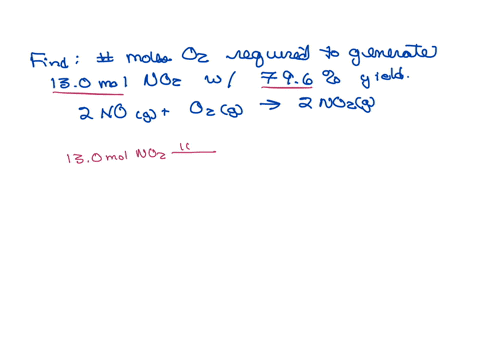 Find: # moles O₂ required to generate
13.0 mol NO₂ w/ 79.6 % yield.
2 NO (g) + O₂ (g) → 2 NO₂ (g)
13.0 mol NO₂